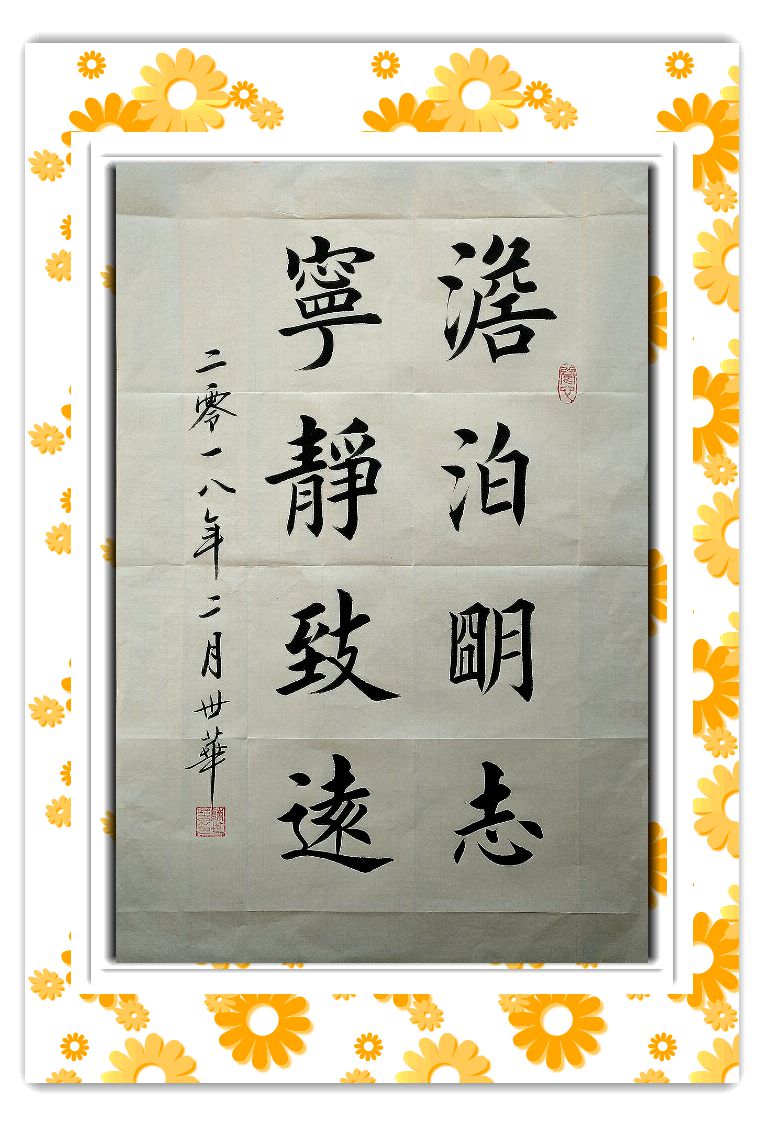 澹泊明志
寧静致遠
二零一八年二月世華